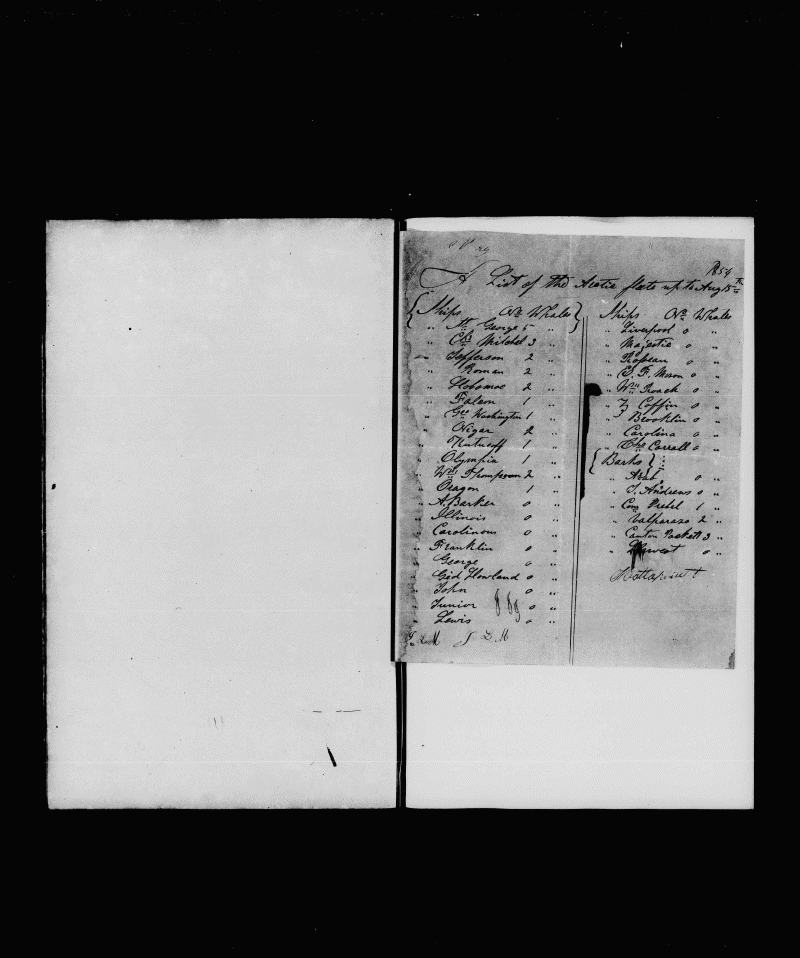 1854
A List of the Arctic fleete up to Aug 15th
Ships No Whales
" Mt George 5 "
" Chs Mitchel 3 "
" Jefferson 2 "
" Roman 2 "
" Hobomoc 2 "
" Falcon 1 "
" Geo Washington 1 "
" Niger 2 "
" 1 "
" Olympia 1 "
" Wm Thompson 2 "
" Oragon 1 "
" A. Barker 0 "
" Illinois 0 "
" Carolinous 0 "
" Franklin 0 "
" George 0 "
" Gid Howland 0 "
" John 0 "
" Junior 0 "
" Lewis 0 "
Ships No Whales
" Liverpool 0 "
" Majestic 0 "
" 0 "
" S. F. Mason 0 "
" Wm Roach 0 "
" Z Coffin 0 "
" Brooklin 0 "
" Carolina 0 "
" Chs Carroll 0 "
Barks
" 0 "
" S. Andrews 0 "
" Com Prebel 1 "
" Valparaso 2 "
" Canton Packett 3 "
" Harvest 0 "